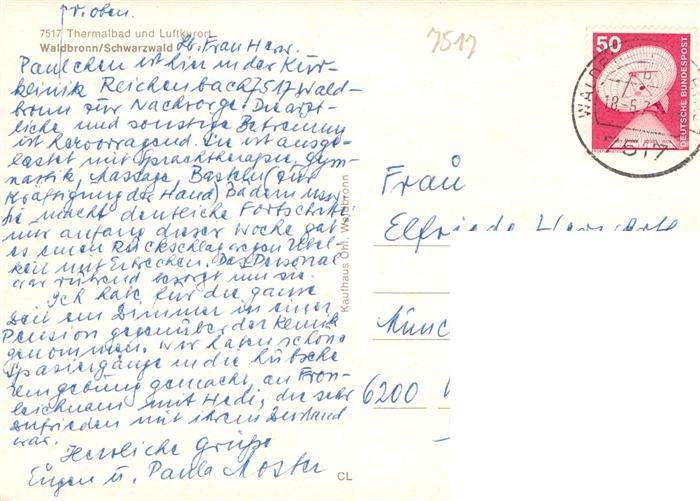 7517 Thermalbad und Luftkurort
Waldbronn/Schwarzwald
Lb. Frau Herw.
Paulchen ist hier in der Kur-
klinik Reichenbach 7517 Wald-
bronn zur Nachsorge. Die ärzt-
liche und sonstige Betreuung
ist hervorragend. Sie ist ausge-
lastet mit Sprachtherapie, Gym-
nastik, Massage, Basteln (zur
Kräftigung der Hand) Bädern usw.
Sie macht deutliche Fortschritte
nur anfang dieser Woche gab
es einen Rückschlag wegen Übel-
keit mit Erbrechen. Das Personal
war rührend besorgt um sie.
Ich habe für die ganze
Zeit ein Zimmer in einer
Pension gegenüber der Klinik
genommen. Wir haben schöne
Spaziergänge in die hübsche
Umgebung gemacht, an Fron-
leichnam mit Hedi, die sehr
zufrieden mit ihrem Zustand
war.
Herzliche Grüße
Eugen u. Paula Moster
Kaufhaus Ohl, Waldbronn
CL
7517
50
DEUTSCHE BUNDESPOST
7517
Frau
Elfriede
Münc
6200